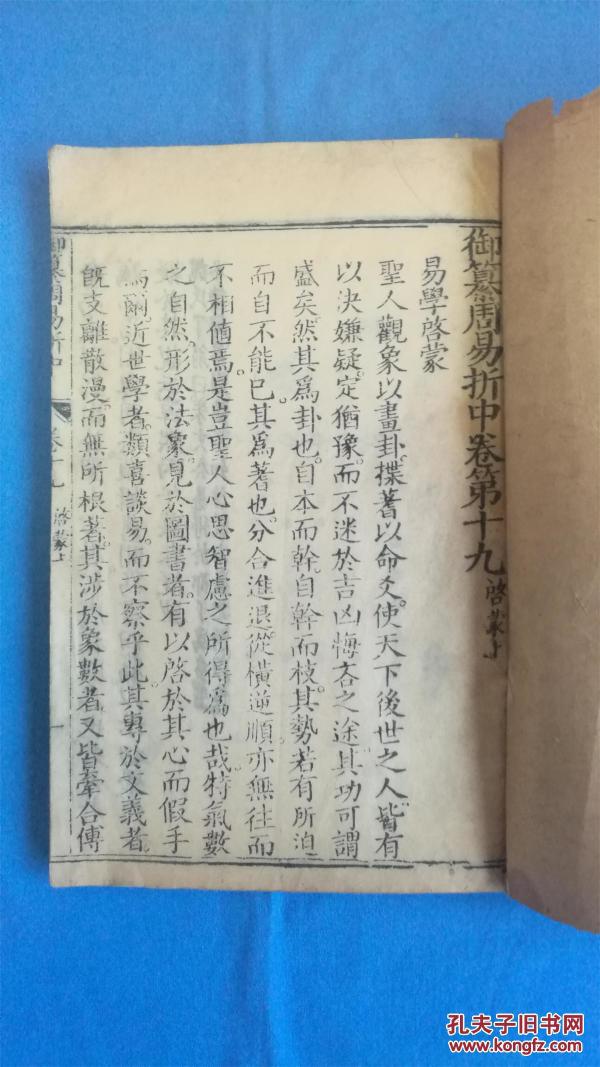 御纂周易折中卷第十九 啓蒙上
易學啓蒙
聖人觀象以畫卦揲蓍以命爻使天下後世之人皆有
以決嫌疑定猶豫而不迷於吉凶悔吝之途其功可謂
盛矣然其爲卦也自本而幹自幹而枝其勢若有所迫
而自不能已其爲蓍也分合進退從橫逆順亦無往而
不相値焉是豈聖人心思智慮之所得爲也哉特氣數
之自然形於法象見於圖書者有以啓於其心而假手
焉爾近世學者類喜談易而不察乎此其專於文義者
旣支離散漫而無所根著其涉於象數者又皆牽合傅
御纂周易折中 卷十九 啓蒙上 一
孔夫子旧书网
www.kongfz.com